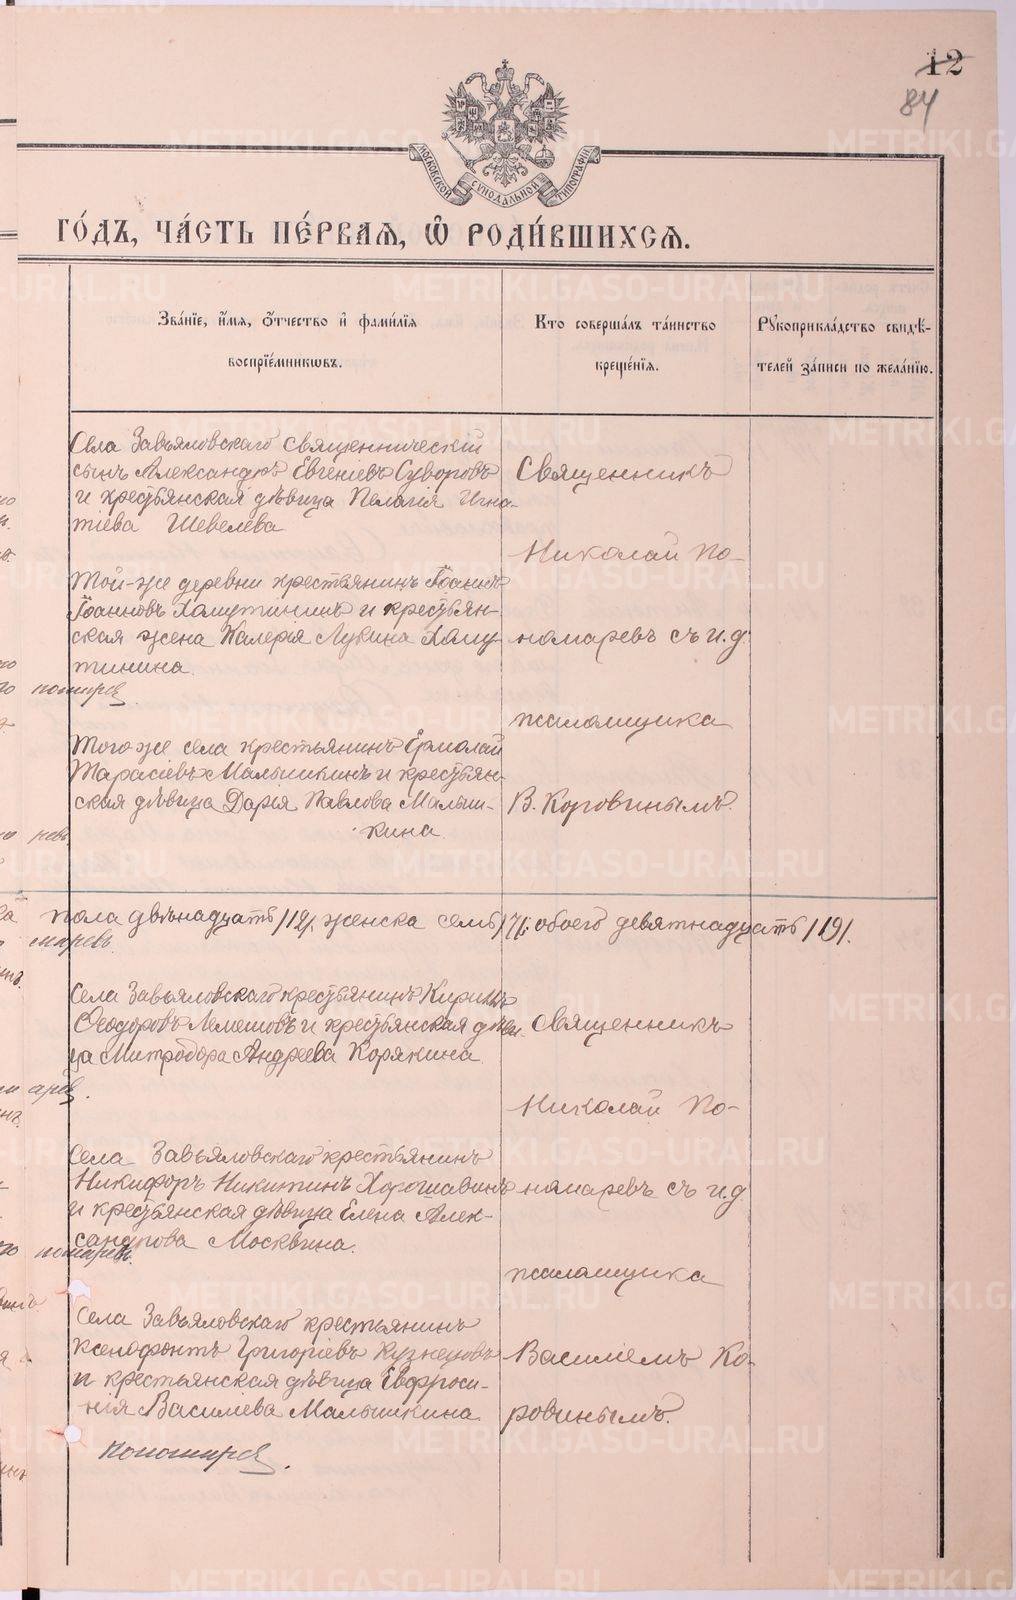 12
84
МОСКОВСКОЙ СУНОДАЛЬНОЙ ТИПОГРАФІИ
ГО́ДЪ, ЧА́СТЬ ПЕ́РВАѦ, Ѡ҆ РОДИ́ВШИХСѦ.
Зва́нїе, и҆́мѧ, ѻ҆́тчество и҆ фами́лїѧ
воспрїе́мникѡвъ.
Кто соверша́лъ та́инство
креще́нїѧ.
Рꙋкоприкла́дство свидѣ́-
телей за́писи по жела́нїю.
Села Завьяловскаго священническій
сынъ Александръ Евгеніевъ Суворовъ
и крестьянская дѣвица Пелагія Игна-
тіева Шевелева
Той-же деревни крестьянинъ Іоаннъ
Іоанновъ Хамутининъ и крестьян-
ская жена Валерія Лукина Хаму-
тинина.
Того-же села крестьянинъ Ермолай
Тарасіевъ Малышкинъ и крестьян-
ская дѣвица Дарія Павлова Малыш-
кина
Священникъ
Николай По-
номаревъ съ и.д.
псаломщика
В. Коровинымъ.
пола двѣнадцать /12/. женска семь /7/. обоего девятнадцать /19/.
Села Завьяловскаго крестьянинъ Кириллъ
Ѳеодоровъ Лемешовъ и крестьянская дѣви-
ца Митродора Андреева Корякина
Села Завьяловскаго крестьянинъ
Никифоръ Никитинъ Хорошавинъ
и крестьянская дѣвица Елена Алек-
сандрова Москвина.
Села Завьяловскаго крестьянинъ
Ксенофонтъ Григоріевъ Кузнецовъ
и крестьянская дѣвица Евфроси-
нія Василіева Малышкина
Священникъ
Николай По-
номаревъ съ и.д.
псаломщика
Василіемъ Ко-
ровинымъ.
METRIKI.GASO-URAL.RU